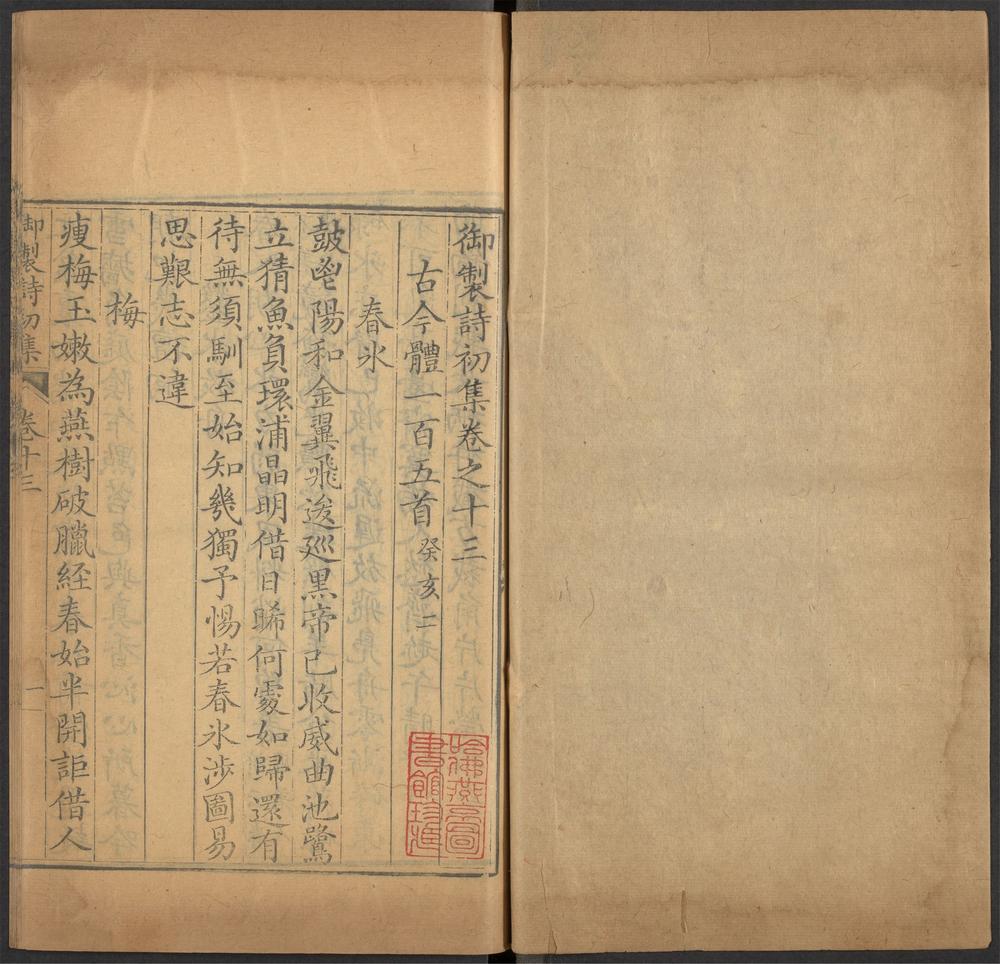 御製詩初集卷之十三
古今體一百五首癸亥二
春氷
鼓鬯陽和金翼飛逡巡黑帝已收威曲池鷺
立猜魚負環浦晶明借日晞何處如歸還有
待無須馴至始知幾獨予惕若春氷涉圖易
思艱志不違
梅
瘦梅玉嫩為燕樹破臘経春始半開詎借人
御製詩初集
卷十三
一
哈佛燕京圖
書館珍藏